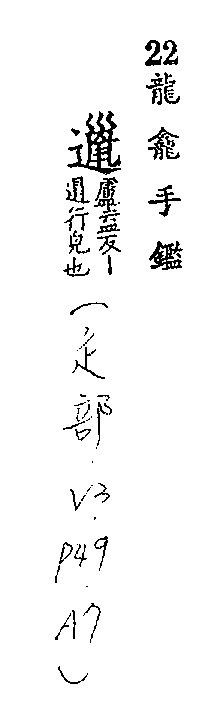 22龍龕手鑑
邋盧盍反|
邋行皃也
(辵部.V3.P49.A7)